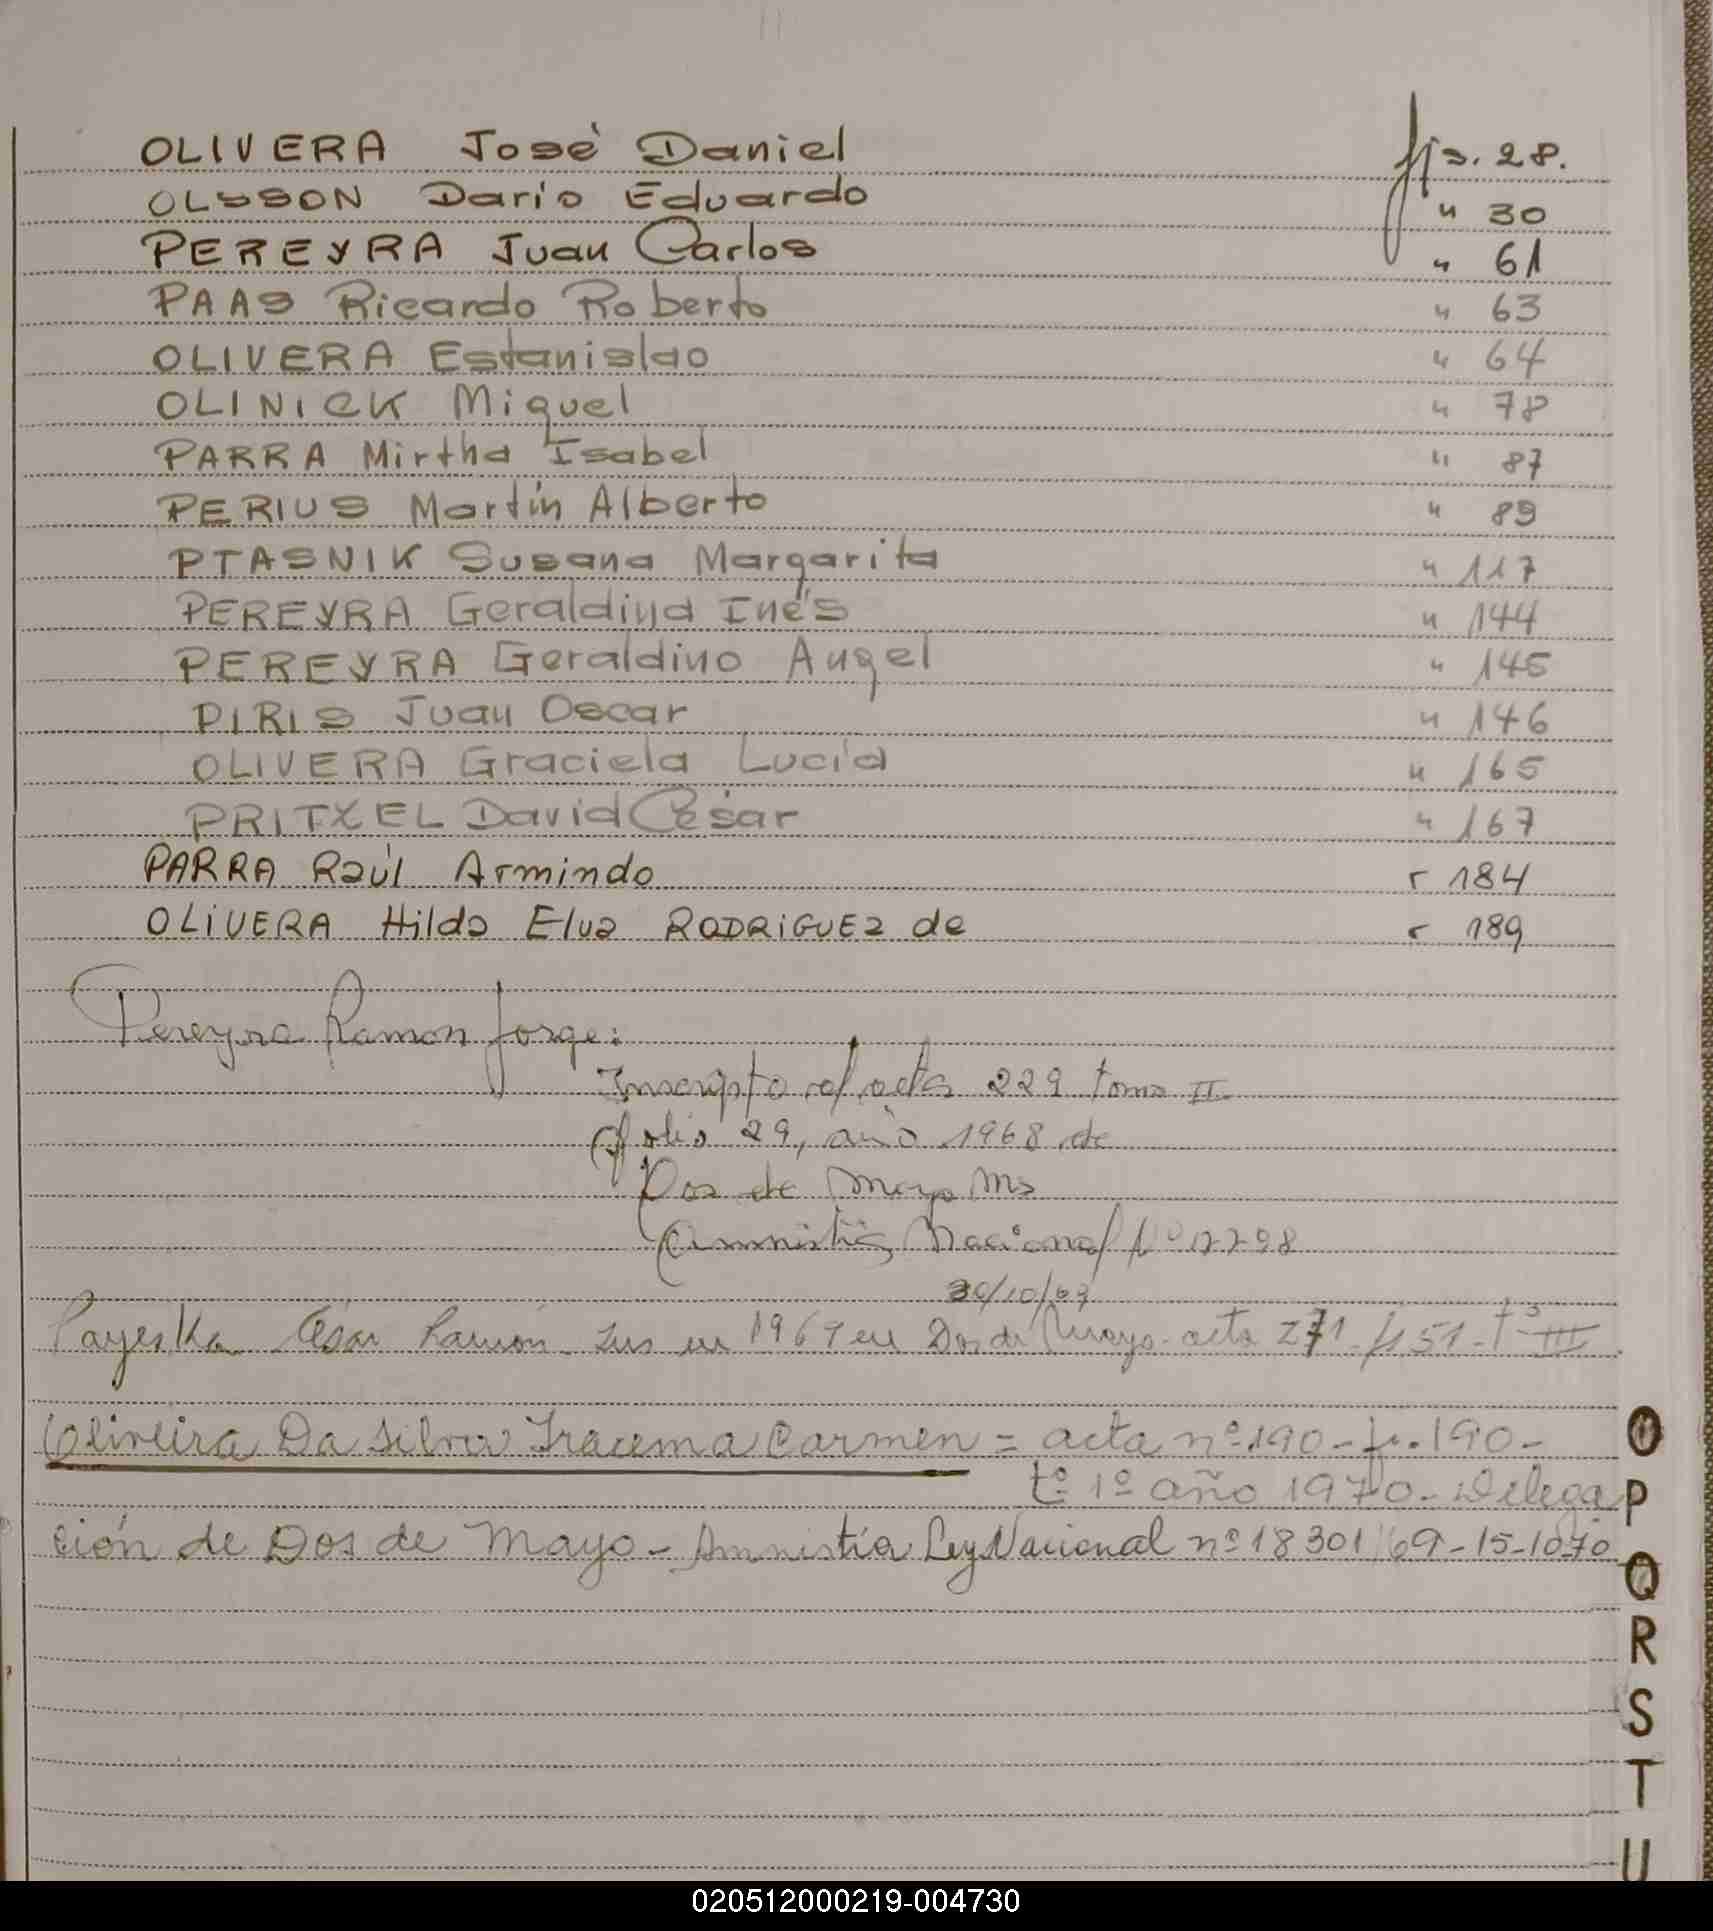 OLIVERA José Daniel fjs. 28.
OLSSON Darío Eduardo " 30
PEREYRA Juan Carlos " 61
PAAS Ricardo Roberto " 63
OLIVERA Estanislao " 64
OLINICK Miguel " 78
PARRA Mirtha Isabel " 87
PERIUS Martín Alberto " 89
PTASNIK Susana Margarita " 117
PEREYRA Geraldina Inés " 144
PEREYRA Geraldino Angel " 145
PIRIS Juan Oscar " 146
OLIVERA Graciela Lucía " 165
PRITXEL David César " 167
PARRA Raúl Armindo " 184
OLIVERA Hilda Elva RODRIGUEZ de " 189
Pereyra Ramon Jorge:
Inscripto al acta 229 tomo II
folio 29, año 1968 de
Dos de Mayo Ms
Amnistia Nacional
30/10/69
César Ramón Ins en 1969 en Dos de Mayo - acta 271 - fº 51 - tº III
Oliveira Da Silva Iracema Carmen = acta nº 190 - fº. 190 -
tº 1º año 1970 - Delega
ción de Dos de Mayo - Amnistía Ley Nacional nº 18301/69 - 15-10-70
O
P
Q
R
S
T
U
020512000219-004730